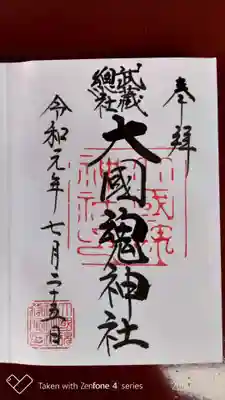 奉拝
武蔵
總社
大國魂神社
令和元年七月二十五日
Taken with Zenfone 4 series